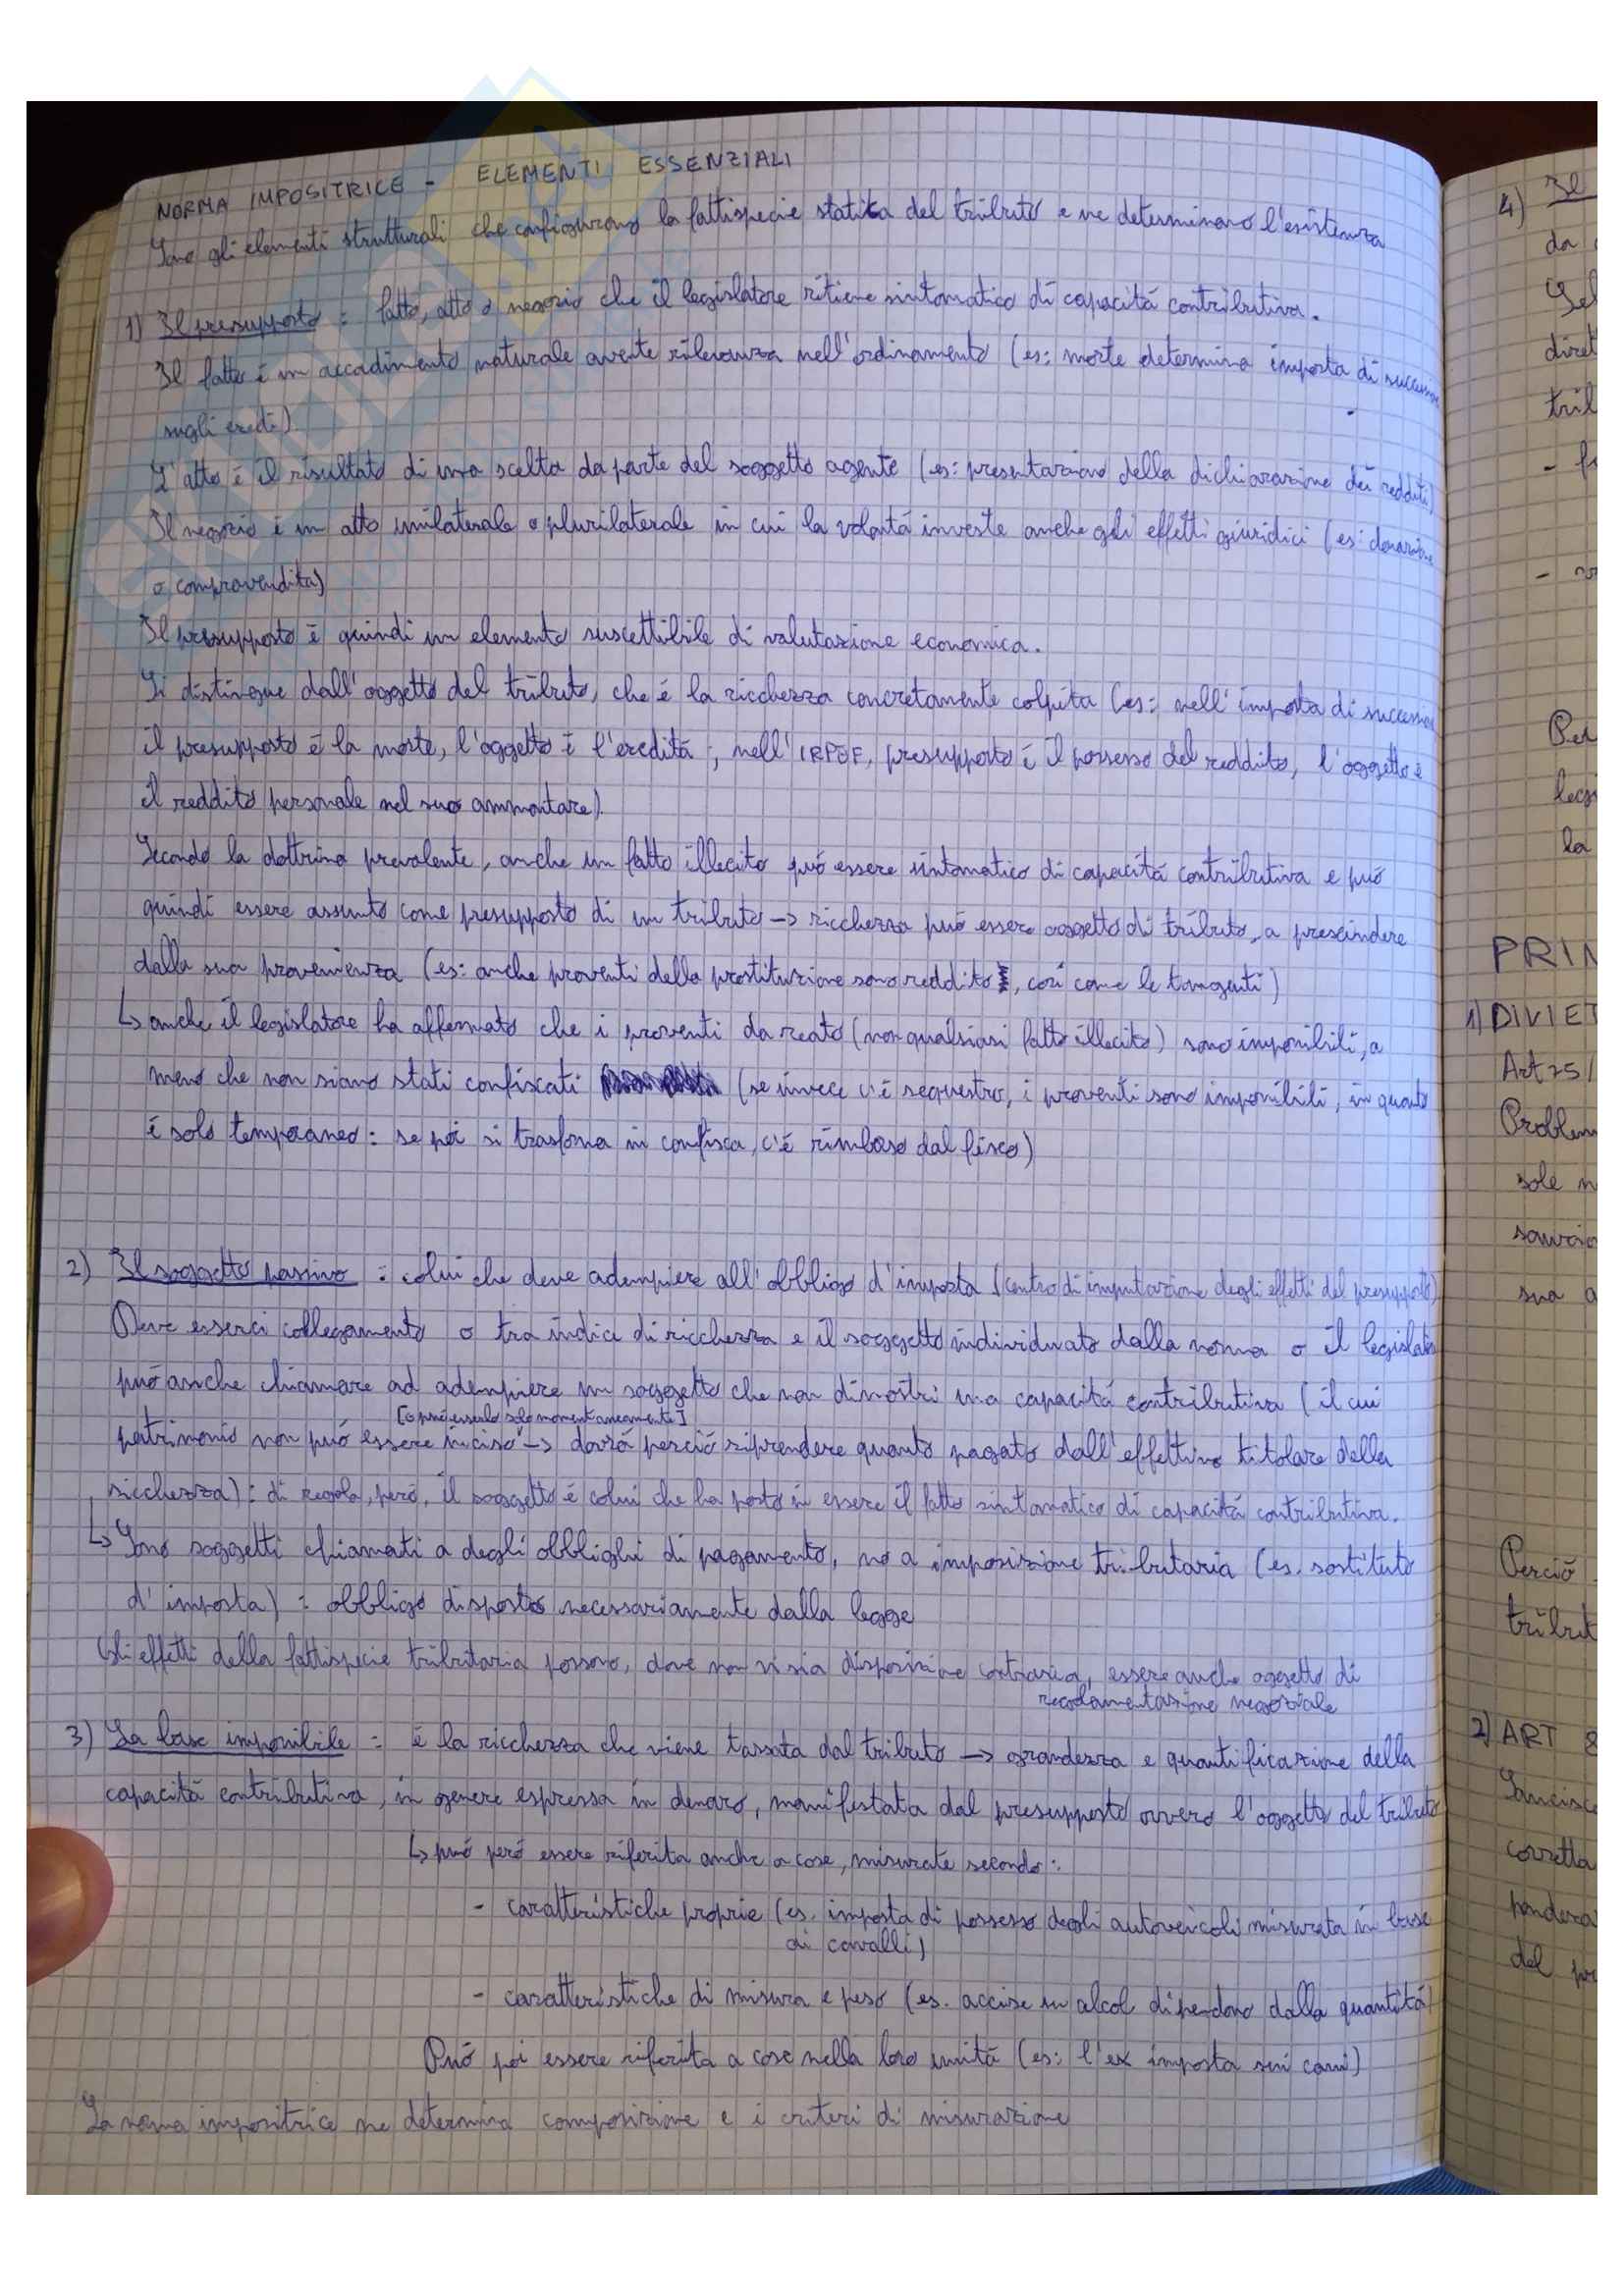 NORMA IMPOSITRICE - ELEMENTI ESSENZIALI
Sono gli elementi strutturali che configurano la fattispecie statica del tributo e ne determinano l'esistenza
1) Il presupposto = fatto, atto o negozio che il legislatore ritiene sintomatico di capacitá contributiva.
Il fatto é un accadimento naturale avente rilevanza nell'ordinamento (es: morte determina imposta di successione
sugli eredi).
L'atto é il risultato di una scelta da parte del soggetto agente (es: presentazione della dichiarazione dei redditi)
Il negozio é un atto unilaterale o plurilaterale in cui la volontá investe anche gli effetti giuridici (es: donazione
o compravendita)
Il presupposto é quindi un elemento suscettibile di valutazione economica.
Si distingue dall'oggetto del tributo, che é la ricchezza concretamente colpita (es: nell'imposta di successione
il presupposto é la morte, l'oggetto é l'ereditá; nell'IRPEF, presupposto é il possesso del reddito, l'oggetto é
il reddito personale nel suo ammontare).
Secondo la dottrina prevalente, anche un fatto illecito puó essere sintomatico di capacitá contributiva e puó
quindi essere assunto come presupposto di un tributo -> ricchezza puó essere oggetto di tributo, a prescindere
dalla sua provenienza (es: anche proventi della prostituzione sono reddito, cosí come le tangenti)
↳ anche il legislatore ha affermato che i proventi da reato (non qualsiasi fatto illecito) sono imponibili, a
meno che non siano stati confiscati (se invece c'é sequestro, i proventi sono imponibili, in quanto
é solo temporaneo: se poi si trasforma in confisca, c'é rimborso dal fisco)
2) Il soggetto passivo = colui che deve adempiere all'obbligo d'imposta (centro di imputazione degli effetti del presupposto)
Deve esserci collegamento o tra indice di ricchezza e il soggetto individuato dalla norma o il legislatore
puó anche chiamare ad adempiere un soggetto che non dimostri una capacitá contributiva (il cui
[o puó esserlo solo momentaneamente]
patrimonio non puó essere inciso -> dovrá perció riprendere quanto pagato dall'effettivo titolare della
ricchezza): di regola, peró, il soggetto é colui che ha posto in essere il fatto sintomatico di capacitá contributiva.
↳ Sono soggetti chiamati a degli obblighi di pagamento, no a imposizione tributaria (es. sostituto
d'imposta) = obbligo disposto necessariamente dalla legge
Gli effetti della fattispecie tributaria possono, dove non vi sia disposizione contraria, essere anche oggetto di
regolamentazione negoziale
3) La base imponibile = é la ricchezza che viene tassata dal tributo -> grandezza e quantificazione della
capacitá contributiva, in genere espressa in denaro, manifestata dal presupposto ovvero l'oggetto del tributo
↳ puó peró essere riferita anche a cose, misurate secondo:
- caratteristiche proprie (es. imposta di possesso degli autoveicoli misurata in base
ai cavalli)
- caratteristiche di misura e peso (es. accise su alcol dipendono dalla quantitá)
Puó poi essere riferita a cose nella loro unitá (es: l'ex imposta sui cani)
La norma impositrice ne determina composizione e i criteri di misurazione
4) Il
da
diret
trib
la
PRIN
1) DIVIET
Art 25/
Problem
sole n
sua a
Perció
tribut
2) ART 8
Sancisce
corretta
pondera
del pr